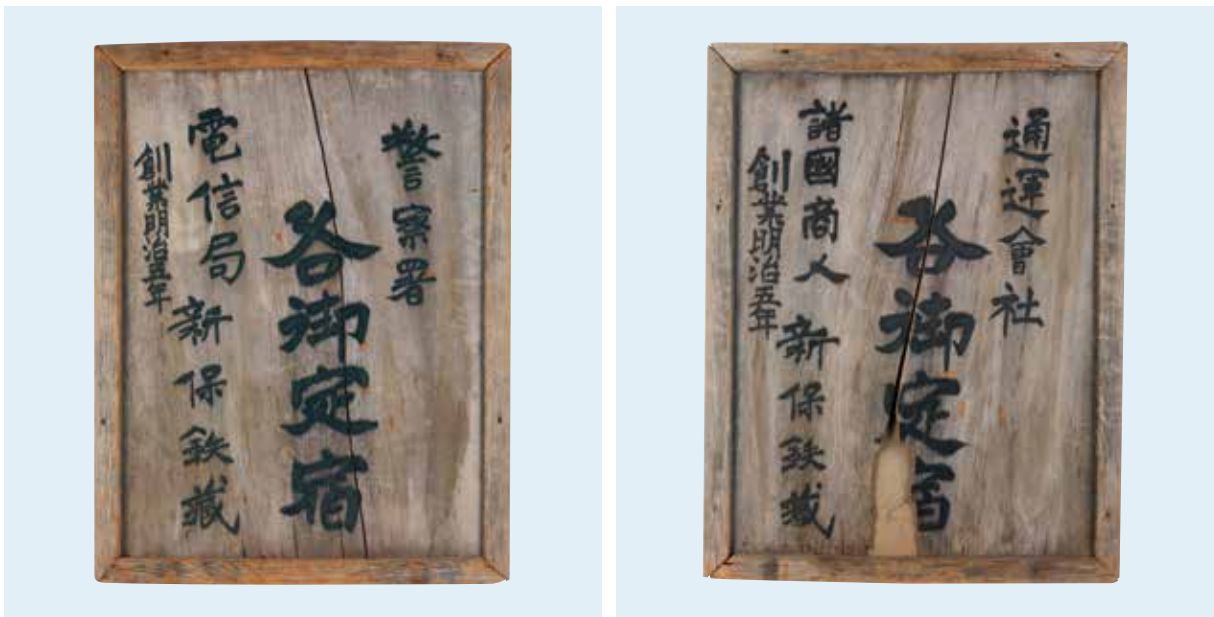 警察署
各御定宿
電信局 新保鉄蔵
創業明治五年
通運會社
各御定宿
諸國商人 新保鉄蔵
創業明治五年